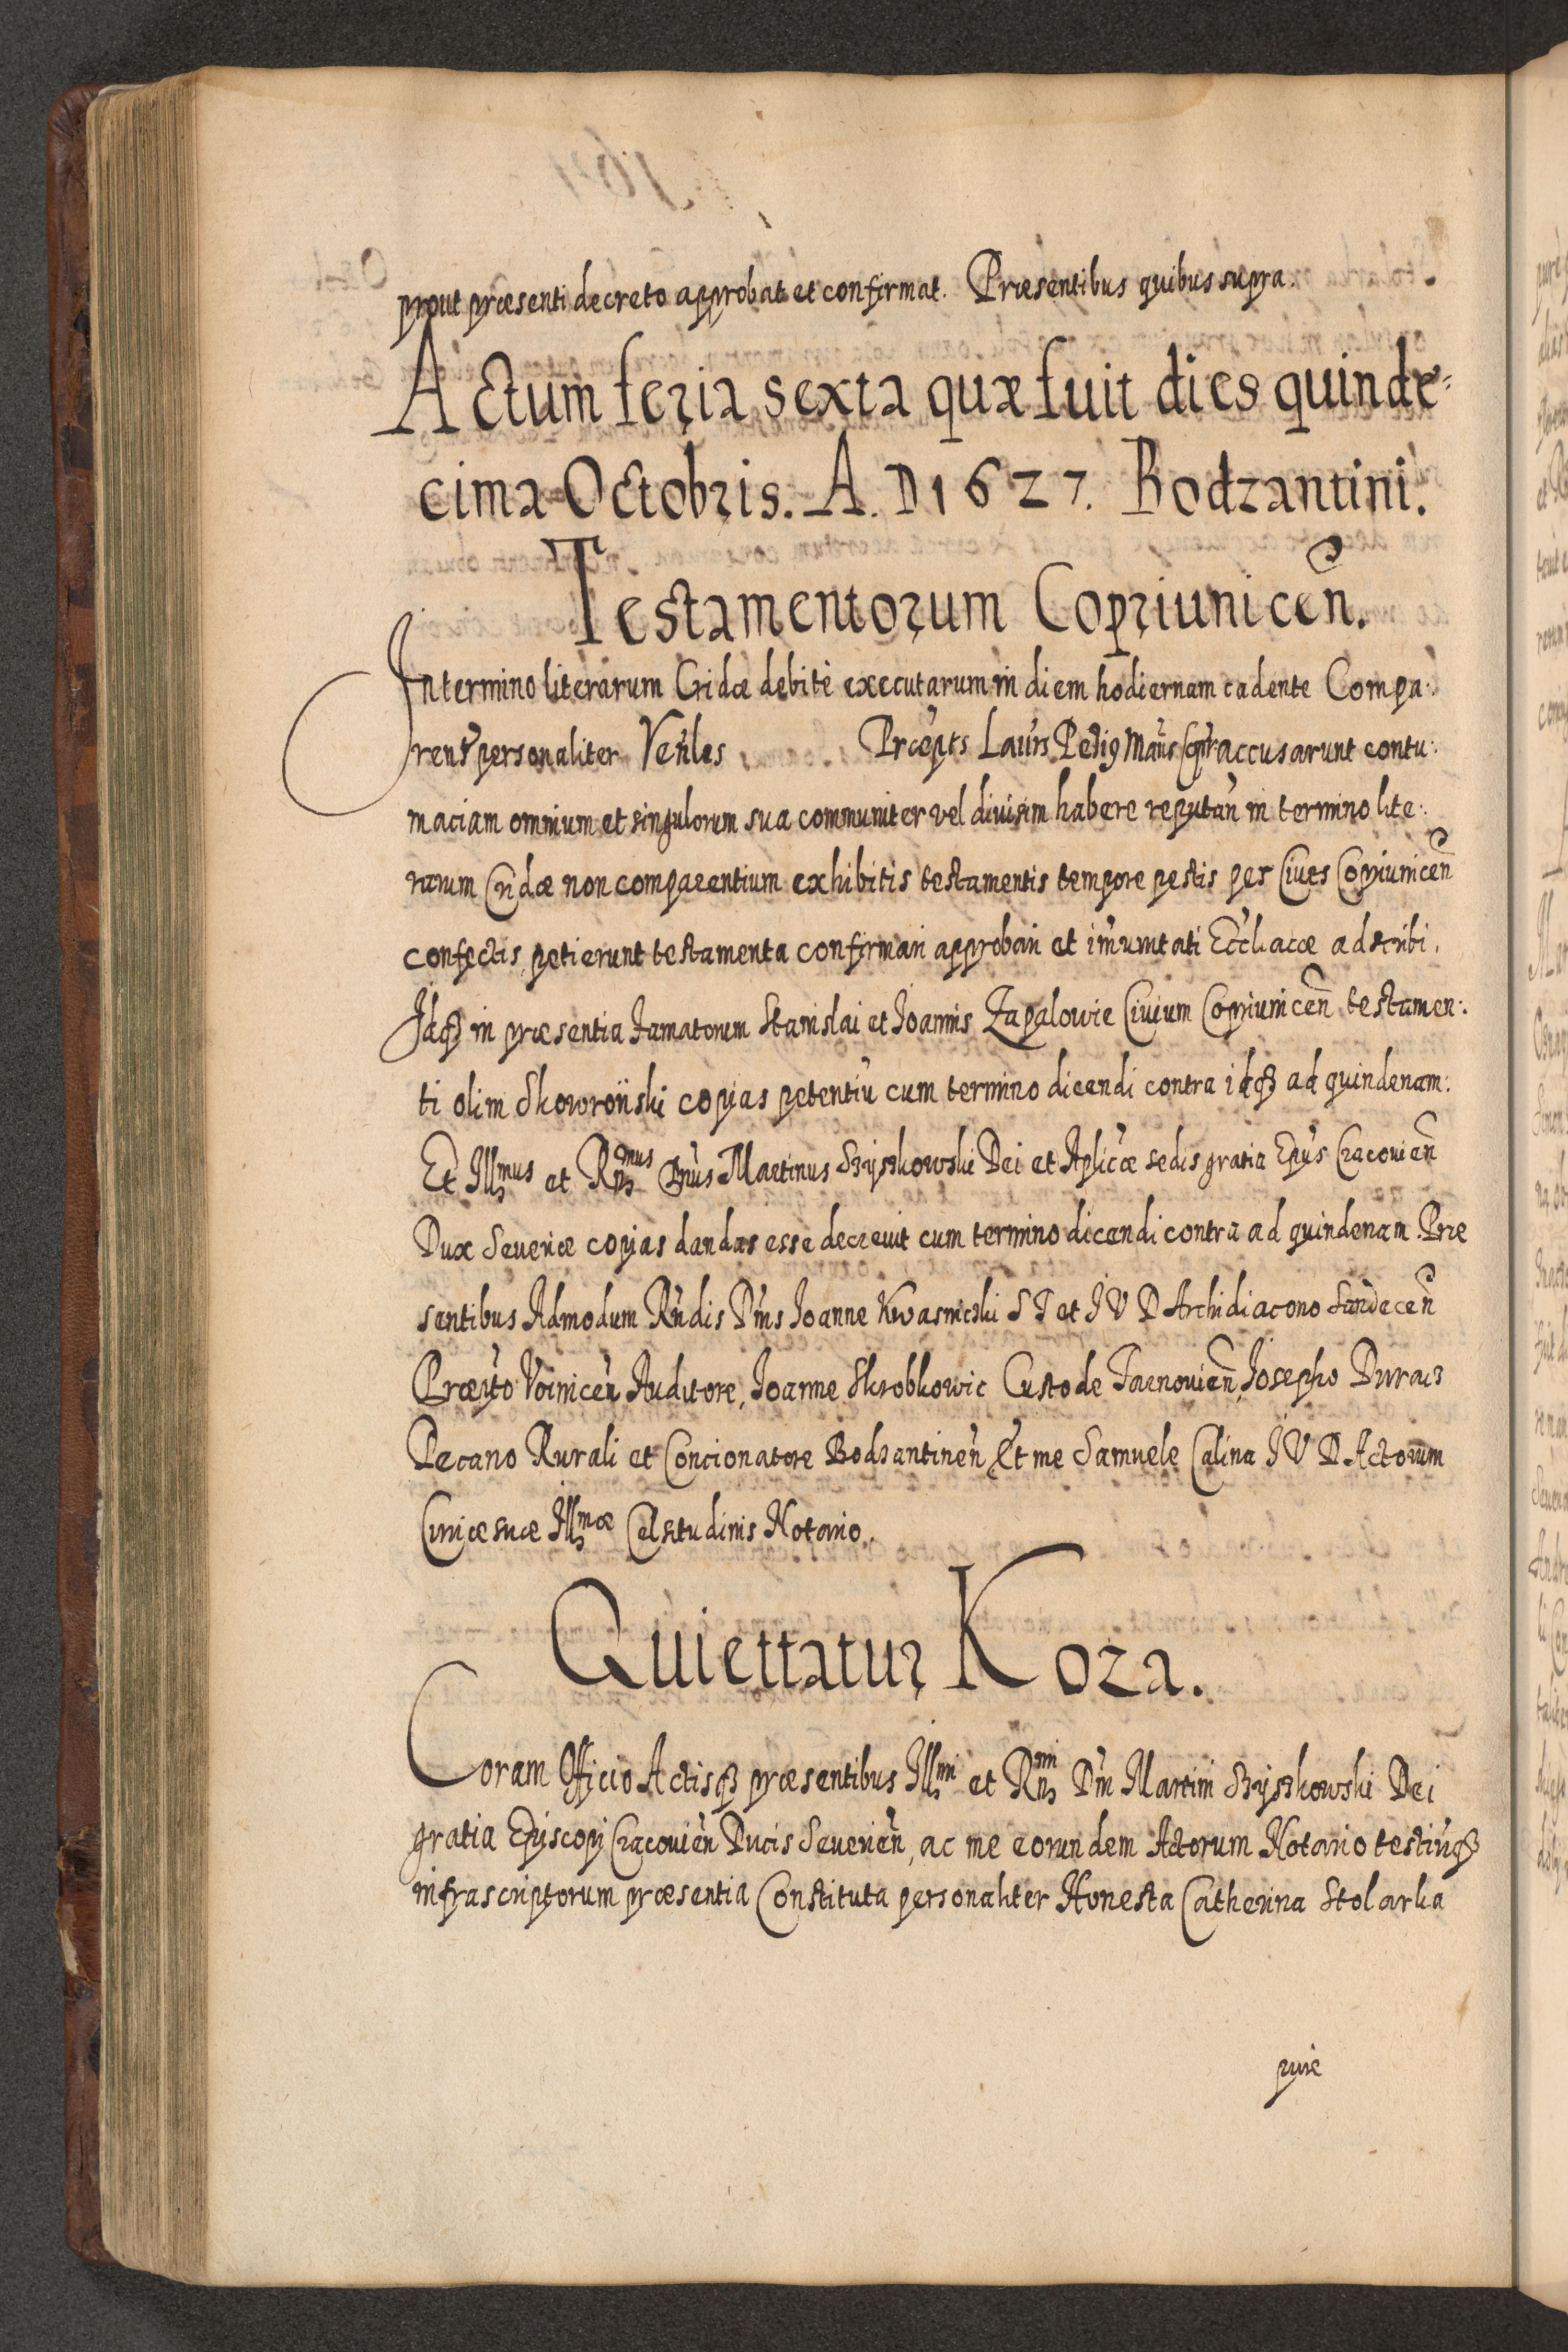 prout præsenti decreto approbat et confirmat. Præsentibus quibus supra.
Actum feria sexta quæ fuit dies quinde=
cima Octobris. A. D 1627. Bodzantini.
Testamentorum Copriunicen̄.
In termino literarum Cridæ debitè executarum in diem hodiernam cadente Compa:
ren̄t personaliter Ven̄les Præpts Laurs accusarunt contu:
maciam omnium et singulorum sua communiter vel diuisim habere reputan̄ in termino lite:
rarum Cridæ non comparentium exhibitis testamentis tempore pestis per Ciues Copriunicen̄
confectis, petierunt testamenta confirmari approbari et im̄unitati Eccl̄iacæ adscribi.
Idq̄ in præsentia Famatorum Stanislai et Ioannis Zapalowic Ciuium Copriunicen̄ testamen:
ti olim Skowroński copias petentiū cum termino dicendi contra idq̄ ad quindenam:
Et Illmus et Rnmus Dn̄us Martinus Szyszkowski Dei et Aplicæ sedis gratia Ep̄us Cracouien̄
Dux Seueriæ copias dandas esse decreuit cum termino dicendi contra ad quindenam. Præ
sentibus Admodum Rn̄dis Dn̄is Ioanne Kwasnicki S T et I V D Archidiacono Sandecen̄
Præpto Voinicen̄ Auditore, Ioanne Skrobkowic Custode Tarnouien̄, Iosepho Duracz
Decano Rurali et Concionatore Bodzantinen̄ Et me Samuele Calina I V D Actorum
Curiæ suæ Illmæ Celsitudinis Notario.
Quiettatur Koza.
Coram Officio Actisq̄ præsentibus Illmi et Rnmi Dn̄i Martini Szyszkowski Dei
gratia Episcopi Cracouien̄ Ducis Seuerien̄, ac me eorundem Actorum Notario testiumq̄
infrascriptorum præsentia Constituta personaliter Honesta Catherina Stolarka
purè